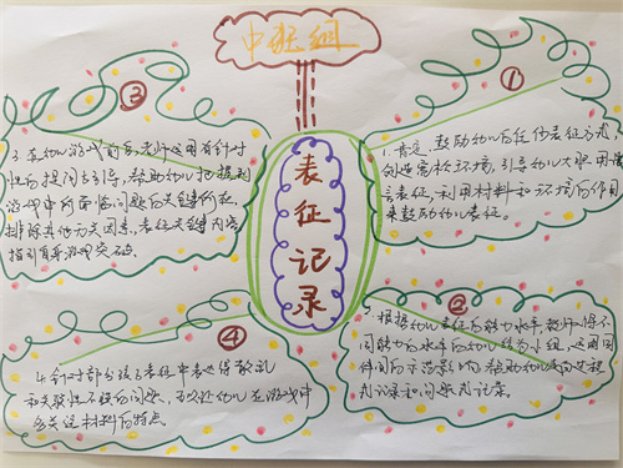 中班组
表征记录
①
1. 肯定、鼓励幼儿的任何表征方式,
创造宽松环境,引导幼儿大胆用语
言表征,利用材料和环境的作用
来鼓励幼儿表征。
②
2. 根据幼儿表征的能力水平,教师将不
同能力水平的幼儿结为小组,运用同
伴间的示范影响,帮助幼儿
记录和问题式记录。
③
3. 在幼儿游戏前后,老师运用有针对
性的提问去引导,帮助幼儿把握到
游戏中所面临问题的关键所在,
排除其他无关因素,表征关键内容
指引自身游戏突破。
④
4. 针对部分孩子表征中表达得散乱
和关联性不强的问题,幼儿在游戏中
去关注材料的特点